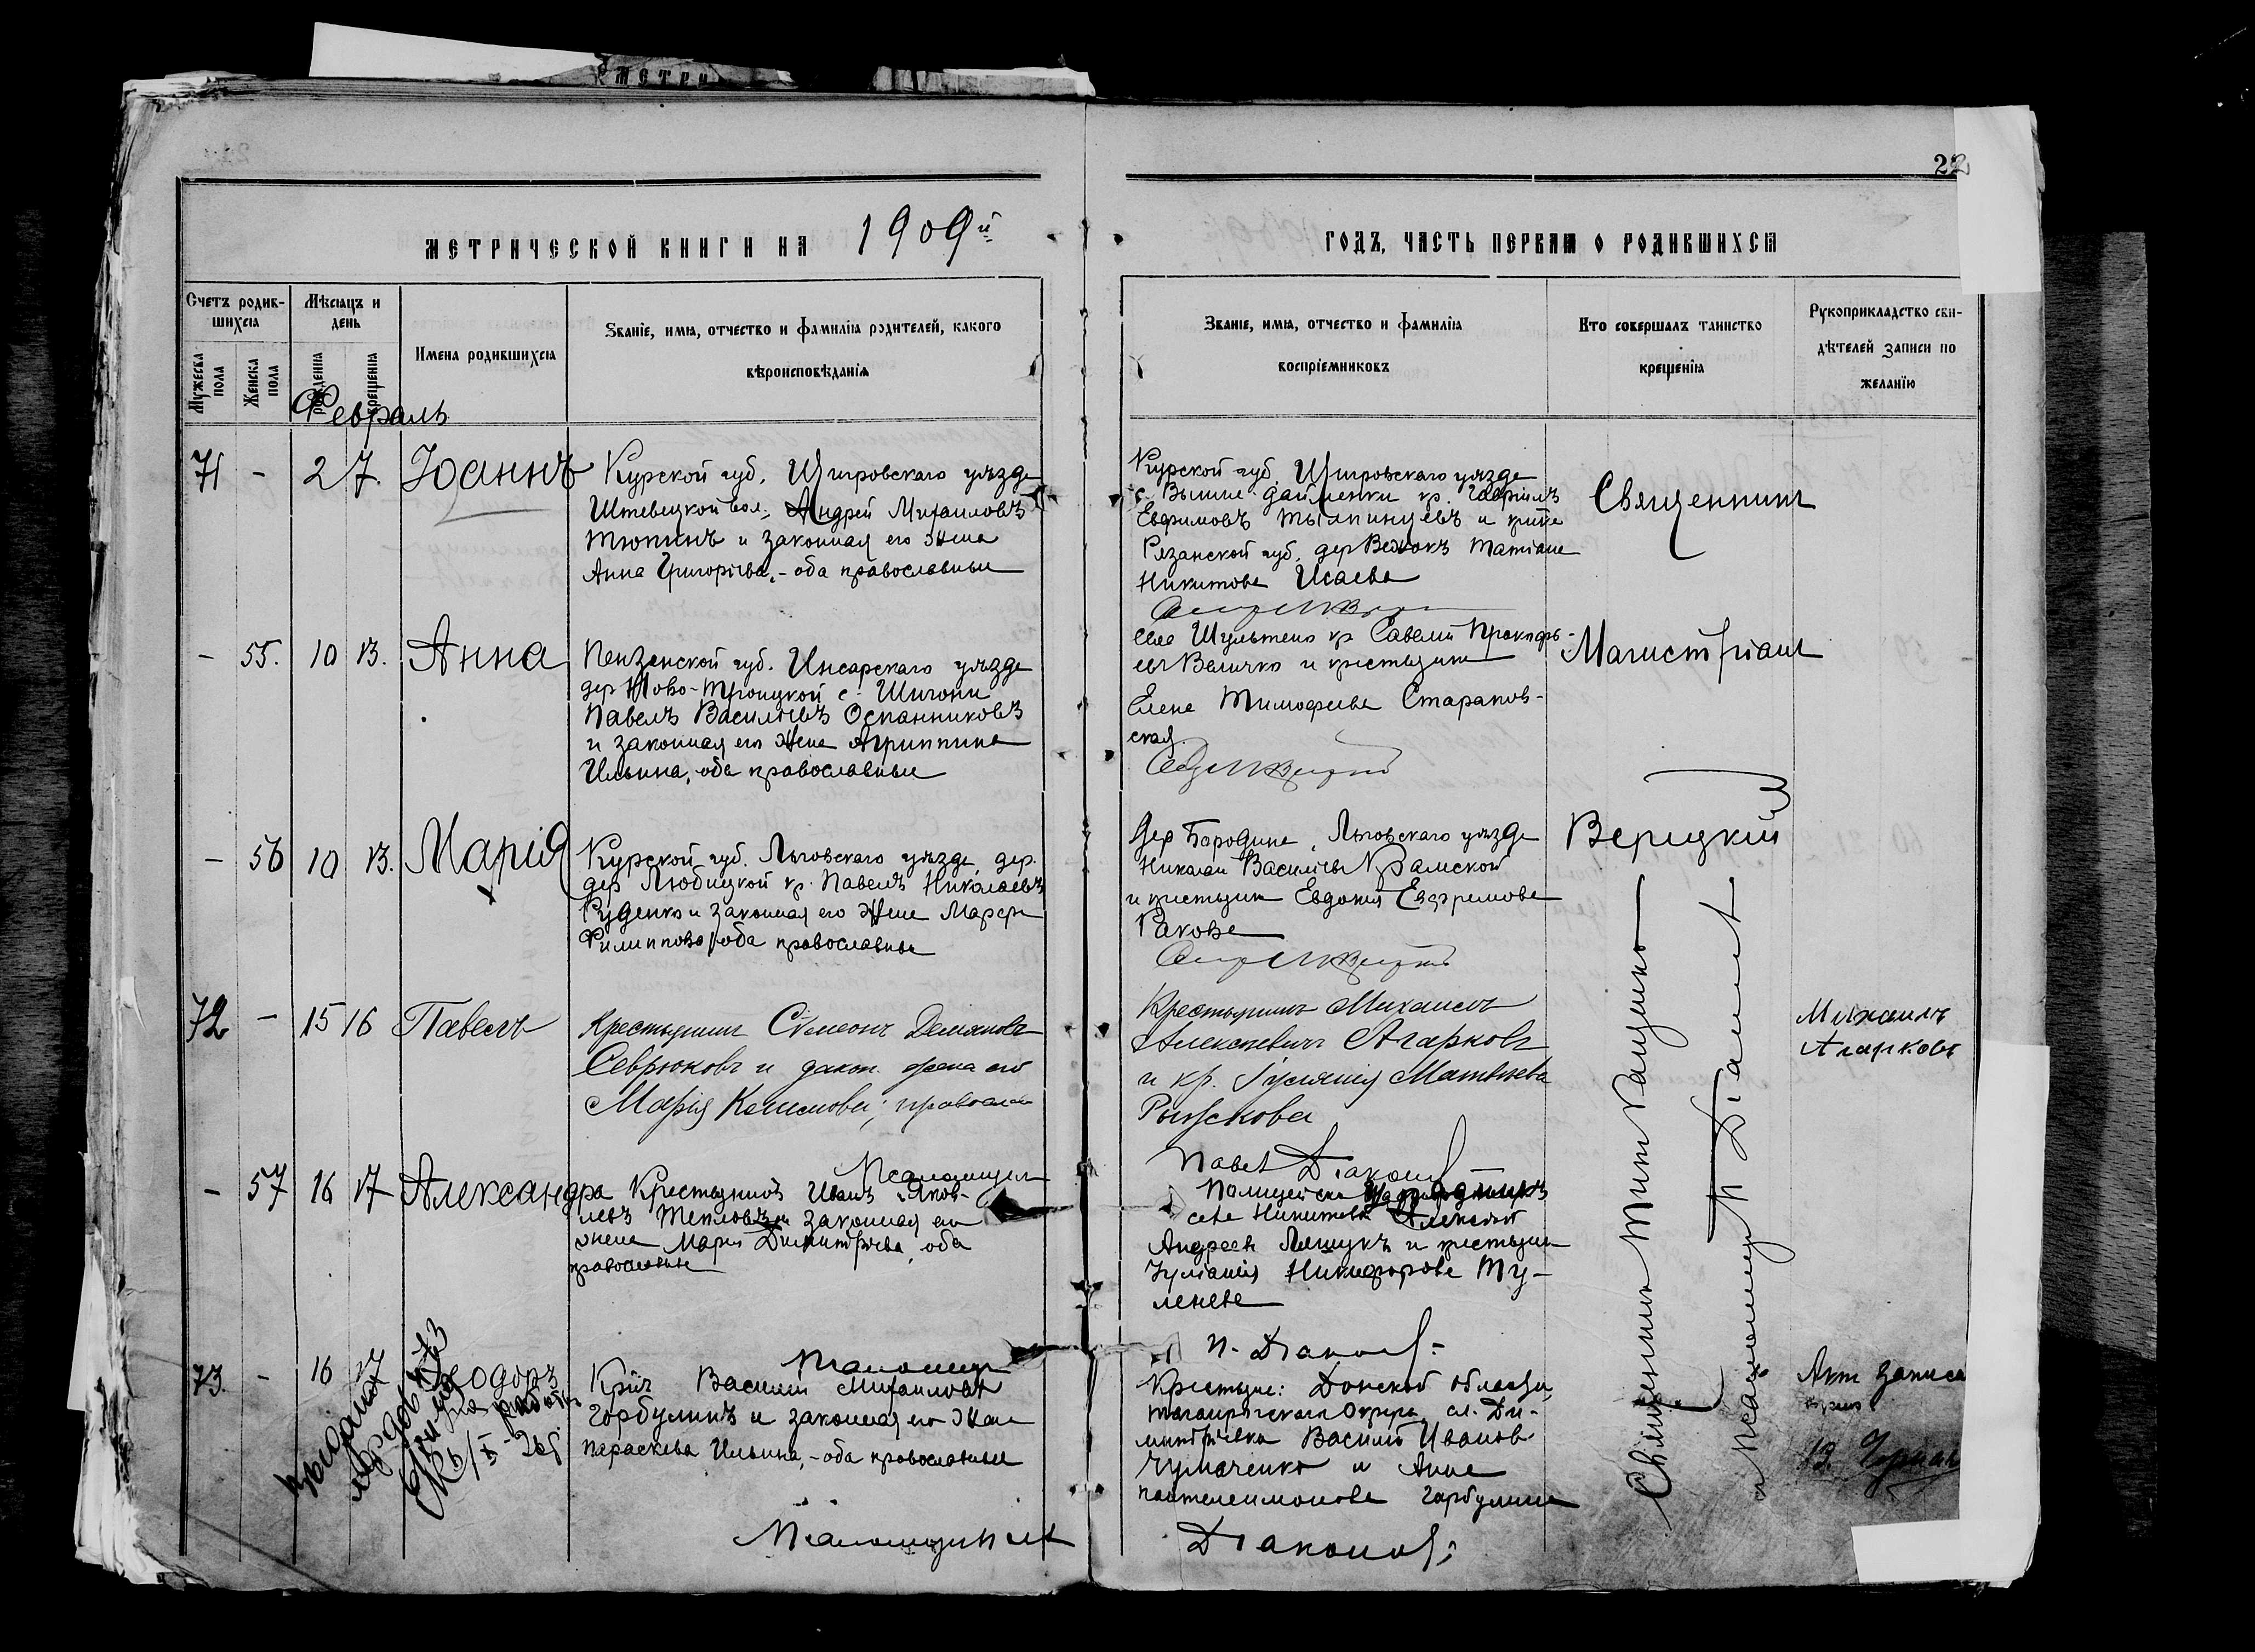 22
МЕТРИЧЕСКОЙ КНИГИ НА 1909й
ГОДЪ, ЧАСТЬ ПЕРВАЯ О РОДИВШИХСЯ
Счетъ родившихся
Мужеска пола
Женска пола
Мѣсяцъ и день
рожденія
крещенія
Имена родившихся
Званіе, имя, отчество и фамилія родителей, какого
вѣроисповѣданія
Званіе, имя, отчество и фамилія
воспріемниковъ
Кто совершалъ таинство
крещенія
Рукоприкладство сви-
дѣтелей записи по
желанію
Февраль
71 - 2 7. Іоаннъ
Курской губ. Щигровскаго уѣзда
вол. Андрей Михаиловъ
Тюпинъ и законная его жена
Анна Григоріева, - оба православные
Курской губ. Щигровскаго уѣзда
кр. Гавріилъ
Евфимовъ и
Рязанской губ. дер Татіана
Никитова Исаева
Священникъ
- 55. 10 13. Анна
Пензенской губ. Инсарскаго уѣзда
дер Ново-Троицкой с. Шигони
Павелъ Василіевъ Оспанниковъ
и законная его жена Агриппина
Ильина, оба православные
села Шульгино кр Савелій Прокофь-
евъ Величко и крестьянка
Елена Тимофеева Стараков-
ская
Магистріанъ
- 56 10 13. Марія
Курской губ. Льговскаго уѣзда, дер.
дер Любицкой кр. Павелъ Николаевъ
Руденко и законная его жена Марфа
Филиппова, оба православные
Дер Бородина, Льговскаго уѣзда
Николай Василіевъ Крамской
и крестьянка Евдокія Евфремова
Ракова
Верицкій
72 - 15 16 Павелъ
Крестьянинъ Сѵмеонъ Демяновъ
Севрюковъ и закон. жена его
Марія ; православн
Крестьянинъ Михаилъ
Алексѣевичъ Агарковъ
и кр. Іуліанія Матвѣева
Рыжскова
Михаилъ
Агарковъ
Псаломщикъ
Павелъ Діаконовъ
- 57 16 17 Александра
Крестьянинъ Иванъ Яков-
левъ Тепловъ и законная его
жена Марія Димитріева, оба
православные
Полицейскій Урядникъ
села Никитовки Алексѣй
Андреевъ Лящукъ и крестьянка
Іуліанія Никифорова Ту-
ленева
Псаломщикъ
П. Діаконовъ
73. - 16 17 Ѳеодоръ
Кр-нъ Василій Михаиловъ
Горбулинъ и законная его жена
Параскева Ильина, - оба православные
Крестьяне: Донской области,
Таганрогскаго Округа, сл. Ди-
митріевка Василій Ивановъ
Чумаченко и Анна
Пантелеимонова Горбулина
Псаломщикъ
Діаконовъ
Священникъ
и Псаломщикъ П Діаконовъ